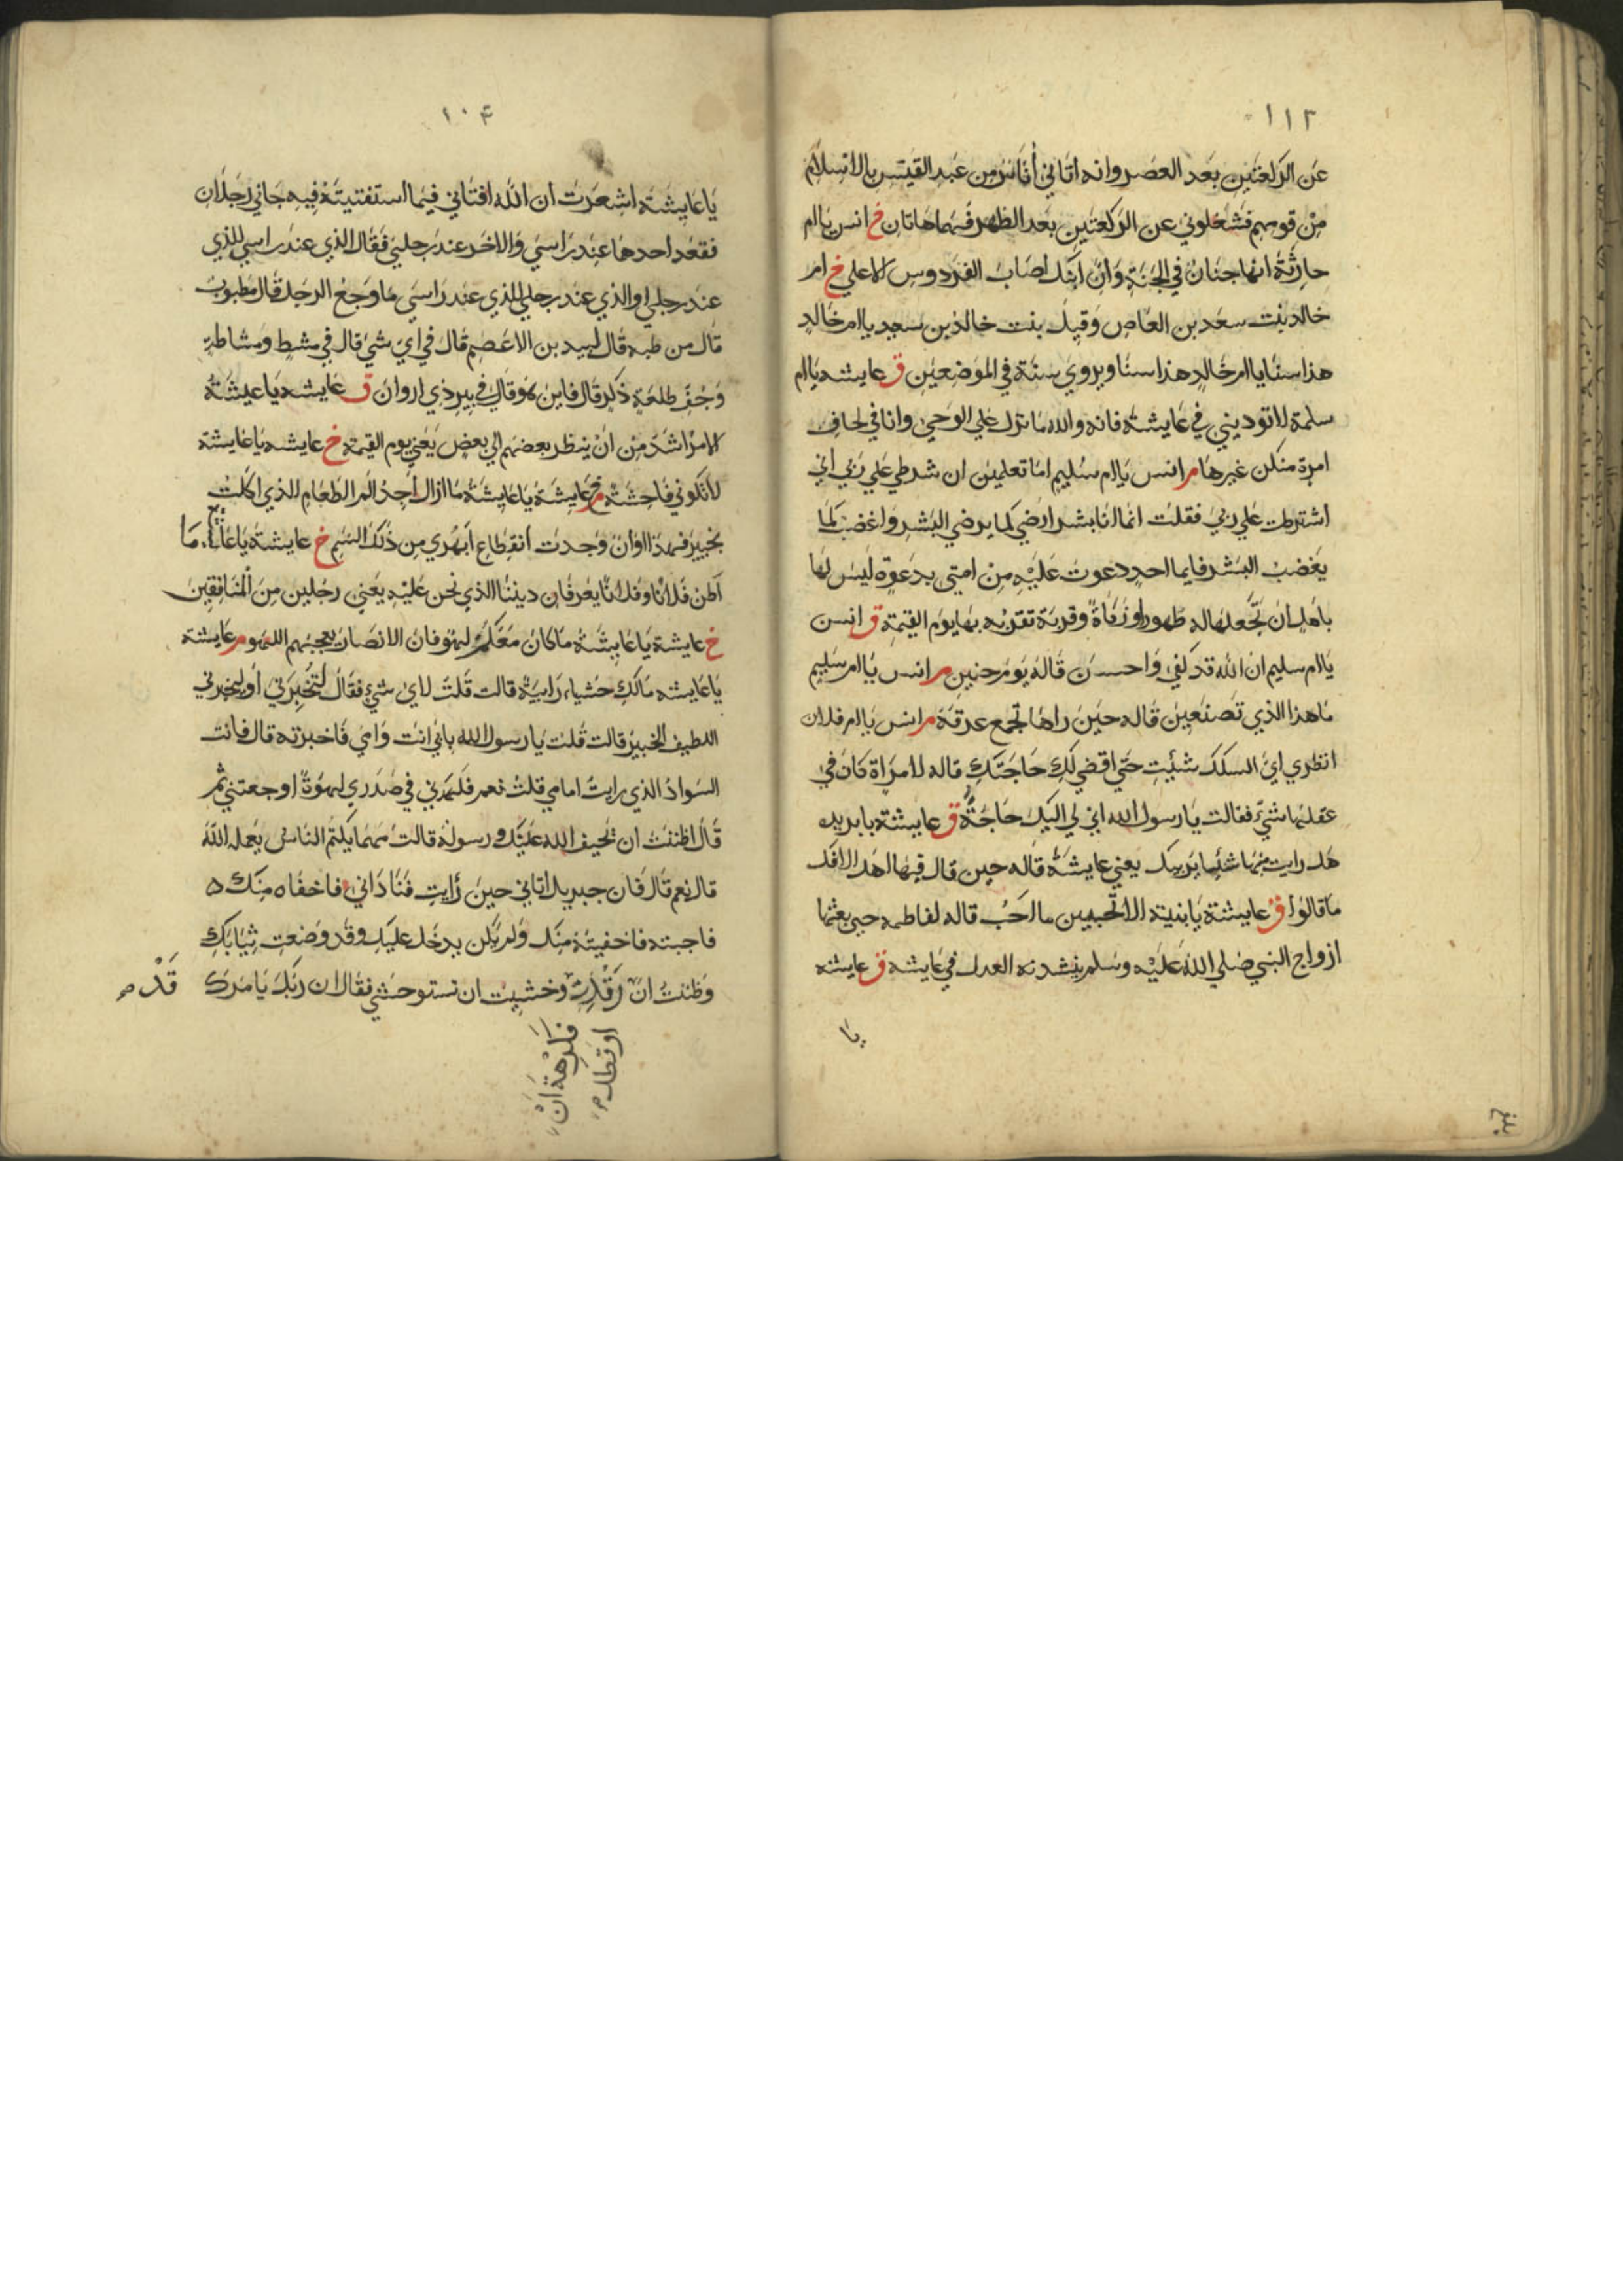 ١١٢
عن الركعتين بعد العصر وانه اتاني أناس من عبد القيس بالاسلام
من قومهم فشغلوني عن الركعتين بعد الظهر فهما هاتان خ انس يا ام
حارثة انها جنان في الجنة وان ابنك اصاب الفردوس الاعلى خ ام
خالد بنت سعد بن العاص وقيل بنت خالد بن سعيد يا ام خالد
هذا سنا يا ام خالد هذا سنا ويروي سنه في الموضعين ق عايشه يا ام
سلمة لا توديني في عايشة فانه والله ما نزل علي الوحي وانا في لحاف
امرة منكن غيرها م انس يا ام سليم اما تعلمين ان شرطي علي ربي اني
اشترطت علي ربي فقلت انما انا بشر ارضي كما يرضي البشر واغضب كما
يغضب البشر فايما احد دعوت عليه من امتي بدعوة ليس لها
باهل ان تجعلها له طهورا وزكاة وقربة تقربه بها يوم القيمة ق انس
يا ام سليم ان الله قد كفي واحسن قاله يوم حنين م انس يا ام سليم
ما هذا الذي تصنعين قاله حين راها تجمع عرقه م انس يا ام فلان
انظري اي السكك شئيت حتي اقضي لك حاجتك قاله لامراة كان في
عقلها شئ فقالت يا رسول الله اني لي اليك حاجة ق عايشة يا بريره
هل رايت منها شئيا يريبك يعني عايشة قاله حين قال فيها اهل الافك
ما قالوا ق عايشة يا بنية الا تحبين ما احب قاله لفاطمه حين بعثها
ازواج النبي صلي الله عليه وسلم ينشدنه العدل في عايشه ق عايشه
يا
بلغ
١٠٤
يا عايشة اشعرت ان الله افتاني فيما استفتيته فيه جاني رجلان
فقعد احدهما عند راسي والاخر عند رجلي فقال الذي عند راسي للذي
عند رجلي او الذي عند رجلي للذي عند راسي ما وجع الرجل قال مطبوب
قال من طبه قال لبيد بن الاعصم قال في اي شئ قال في مشط ومشاطة
وجف طلعة ذكر قال فاين هو قال في بير ذي اروان ق عايشه يا عيشة
الامر اشد من ان ينظر بعضهم الي بعض يعني يوم القيمة خ عايشه يا عايشة
لا تكوني فاحشة م خ عايشة يا عايشة ما ازال اجد الم الطعام الذي اكلت
بخيبر فهذا اوان وجدت انقطاع ابهري من ذلك السم خ عايشة يا عا ما
اظن فلانا وفلانا يعرفان ديننا الذي نحن عليه يعني رجلين من المنافقين
خ عايشة يا عايشة ما كان معكم لهو فان الانصار يعجبهم اللهو م عايشة
يا عايشه مالك حشيا رابية قالت قلت لاي شئ فقال لتخبرني او ليخبرني
اللطيف الخبير قالت قلت يا رسول الله بابي انت وامي فاخبرته قال فانت
السواد الذي رايت امامي قلت نعم فلهدني في صدري لهدة اوجعتني ثم
قال اظننت ان يحيف الله عليك ورسوله قالت مهما يكتم الناس يعلمه الله
قال نعم قال فان جبريل اتاني حين رايت فناداني فاخفاه منك ه
فاجبته فاخفيته منك ولم يكن يدخل عليك وقد وضعت ثيابك
وظننت ان رقدت وخشيت ان تستوحشي فقال ان ربك يامرك
قد م
فكرهة ان
اوقظك م